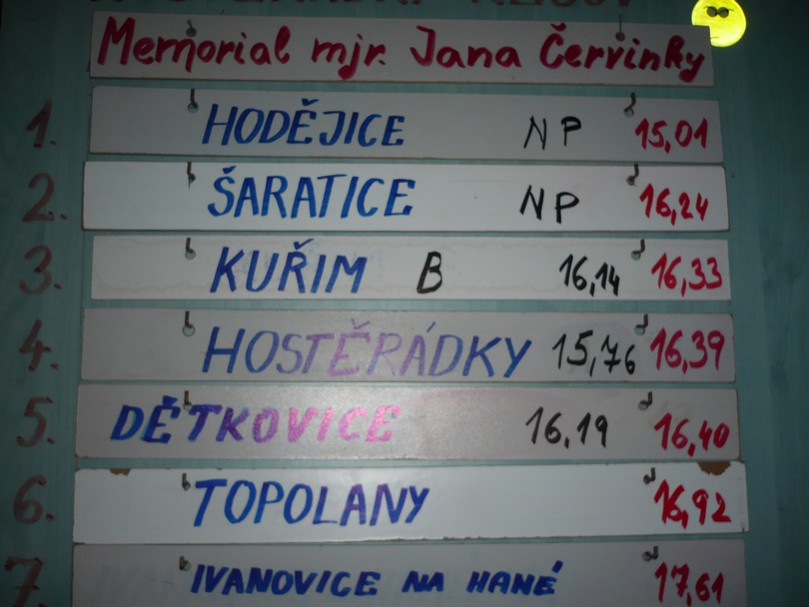 Memorial mjr. Jana Červinky
1. HODĚJICE NP 15,01
2. ŠARATICE NP 16,24
3. KUŘIM B 16,14 16,33
4. HOSTĚRÁDKY 15,76 16,39
5. DĚTKOVICE 16,19 16,40
6. TOPOLANY 16,92
7. IVANOVICE NA HANÉ 17,61